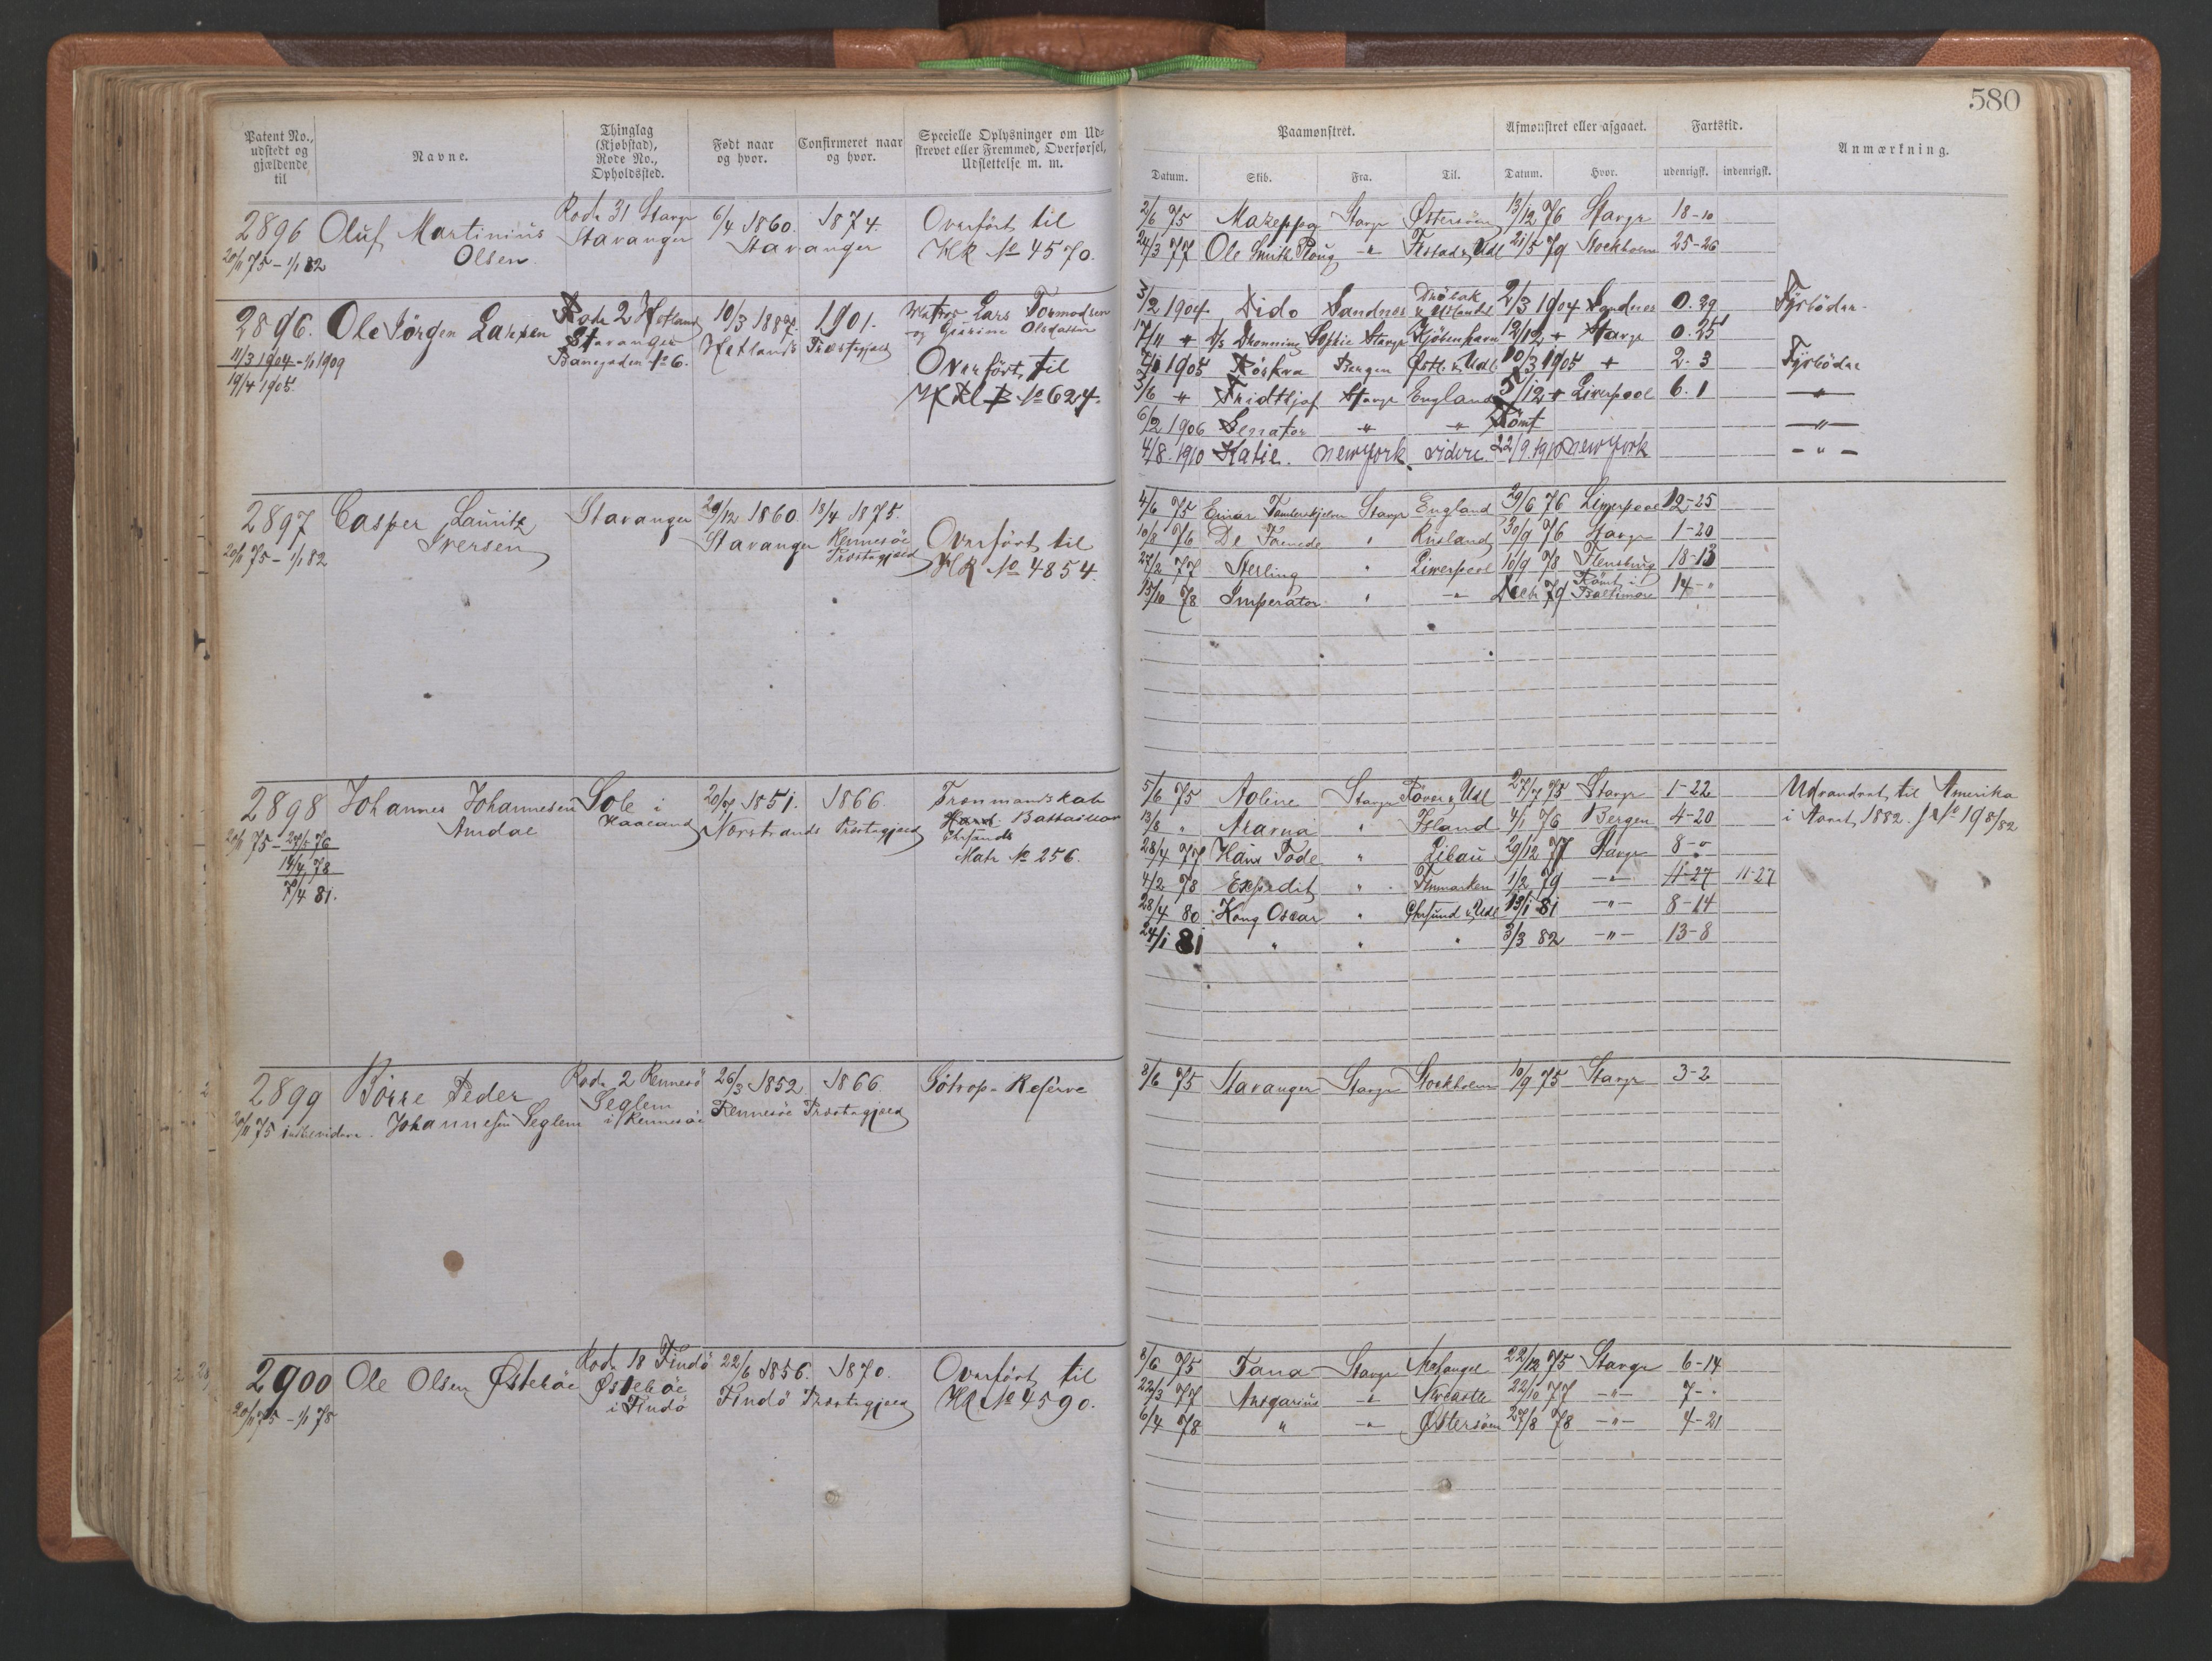 580
Patent No., udstedt og gjældende til
Navne.
Thinglag (Kjøbstad), Rode No., Opholdssted.
Født naar og hvor.
Confirmeret naar og hvor.
Specielle Oplysninger om Udstrevet eller Fremmed, Overførsel, Udslettelse m. m.
Paamønstret.
Afmønstret eller afgaaet.
Fartstid.
Anmærkning.
Datum.
Skib.
Fra.
Til.
Datum.
Hvor.
udenrigsk.
indenrigsk.
2896
20/11 75 - 1/1 82
Oluf Martinius
Olsen
Rode 31 Stavgr
Stavanger
6/4 1860.
1874.
Stavanger
Overført til
HR No 4570.
2/6 75 Mazeppa Stavgr Østersøen 13/12 76 Stavgr 18-10
24/3 77 Ole Smith Ploug -"- Udl 21/5 79 Stockholm 25-26
2896.
11/3 1904 - 1/1 1909
19/4 1905.
Ole Jörgen Larsen
Rode 2 Hetland
Stavanger
Banegaden No 6.
10/3 1887.
1901.
Hetlands Præstegjeld
Lars Tormodsen
og Olsdatter
Overført til
No 624.
3/2 1904 Dido Sandnes Drøbak & Udlandet 2/3 1904 Sandnes 0.29 Fyrbøder
17/11 " D/s Dronning Sophie Stavgr Kjøbenhavn 12/12 " Stavgr 0.25
1905 Röskva Bergen Østl & Udl 10/3 1905 " 2.3 Fyrböder
3/6 " Fridthjof Stavgr England 5/12 " Liverpool 6.1 -"-
6/2 1906 Senator " -"- Römt -"-
4/8.1910 Katie. New York videre 22/9.1910 New York - " -
2897
20/11 75 - 1/1 82
Casper Lauritz
Iversen
Stavanger
29/12 1860.
Stavanger
18/4 1875.
Rennesöe
Præstegjeld
Overført til
HR No 4854.
4/6 75 Einar Tamberskjelver Stavgr England 29/6 76 Liverpool 12-25
10/8 76 De Forenede " Rusland 30/9 76 Stavgr 1-20
27/2 77 Sterling " Liverpool 10/9 78 Flensburg 18-13
15/10 78 Imperator " -"- Decb 79 Römt i Baltimore 14-"
2898
20/11 75 - 27/5 76
14/4 78
7/4 81.
Johannes Johannesen
Amdal
Sole i
Haaland
20/7 1851.
1866.
Nerstrands Præstegjeld
Tronmandskab
Battaillon
Chrsands
Matr No 256.
5/6 75 Aoline Stavgr Udl 27/7 75 Stavgr 1-22
13/8 " Axarua " Island 4/1 76 Bergen 4-20
28/4 77 Hans Tode " Libau 29/12 77 Stavgr 8-0
4/2 78 Expedit " Finmarken 1/2 79 -"- 11-27 11-27
28/4 80 Kong Oscar " Chrsund & Udl 13/1 81 -"- 8-14
24/1 81 " " " 3/3 82 -"- 13-8
Udvandret til Amerika
i Aaret 1882. J No 198/82
2899
20/11 75 indtil videre.
Börre Peder
Johannesen Seglem
Rode 2 Rennesö
Seglem
i Rennesöe
26/3 1852
1866
Rennesöe Præstegjeld
Søtrop-Reserve
8/6 75 Stavanger Stavgr Stockholm 10/9 75 Stavgr 3-2
2900
20/11 75 - 1/1 78
Ole Olsen Østeböe
Rode 18 Findö
Østeböe
i Findö
22/6 1856.
1870.
Findö Præstegjeld
Overført til
HR No 4590.
8/6 75 Tana Stavgr Archangel 22/12 75 Stavgr 6-14
22/3 77 Ansgarius -"- Newcastle 22/10 77 -"- 7-"
6/4 78 " -"- Østersøen 27/8 78 -"- 4-21